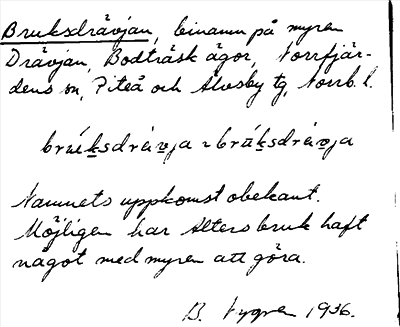 Bruksdråvjan, binamn på myren
Dråvjan, Bodträsk ägor, Norrfjär-
dens sn, Piteå och Älvsby tg, Norrb. l.
brúksdràvja ~ brúksdràvja
Namnets uppkomst obekant.
Möjligen har Alters bruk haft
något med myren att göra.
B. 1936.